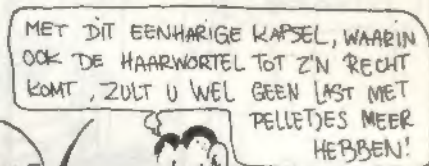 MET DIT EENHARIGE KAPSEL, WAARIN
OOK DE HAARWORTEL TOT Z'N RECHT
KOMT, ZULT U WEL GEEN LAST MET
PELLETJES MEER
HEBBEN!